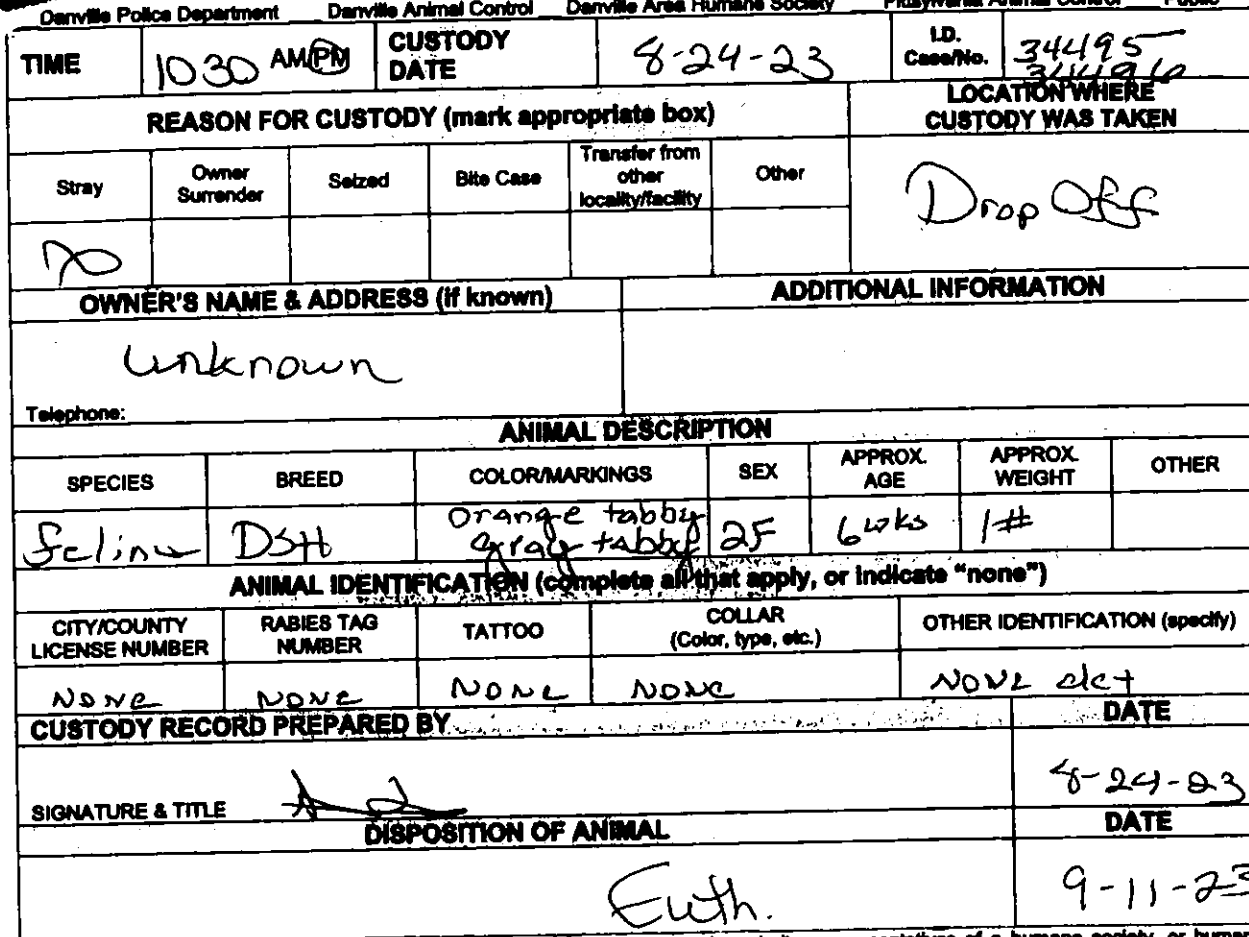 Danville Police Department Danville Animal Control Danville Area Humane Society Pittsylvania Animal Control Public
TIME 1030 AM/PM CUSTODY DATE 8-24-23 I.D. Case/No. 34495
34496
REASON FOR CUSTODY (mark appropriate box) LOCATION WHERE CUSTODY WAS TAKEN
Stray Owner Surrender Seized Bite Case Transfer from other locality/facility Other
Drop Off
OWNER'S NAME & ADDRESS (if known) ADDITIONAL INFORMATION
unknown
Telephone:
ANIMAL DESCRIPTION
SPECIES BREED COLOR/MARKINGS SEX APPROX. AGE APPROX. WEIGHT OTHER
Feline DSH orange tabby gray tabby 2F 6 wks 1#
ANIMAL IDENTIFICATION (complete all that apply, or indicate "none")
CITY/COUNTY LICENSE NUMBER RABIES TAG NUMBER TATTOO COLLAR (Color, type, etc.) OTHER IDENTIFICATION (specify)
NONE NONE NONE NONE NONE
CUSTODY RECORD PREPARED BY DATE
SIGNATURE & TITLE 8-24-23
DISPOSITION OF ANIMAL DATE
Euth. 9-11-23